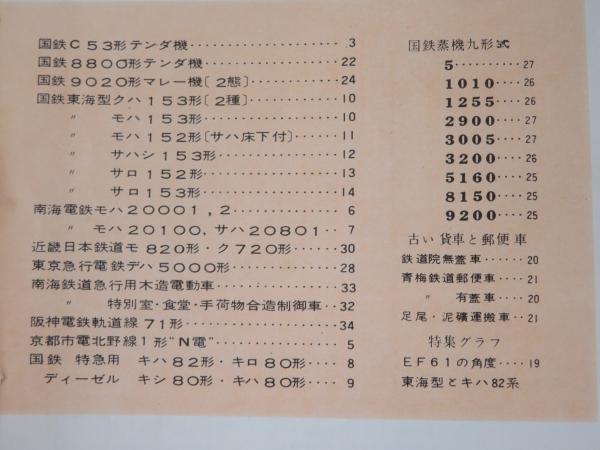 国鉄C53形テンダ機……………………3
国鉄8800形テンダ機……………………22
国鉄9020形マレー機〔2態〕……………24
国鉄東海型クハ153形〔2種〕……………10
〃 モハ153形……………………10
〃 モハ152形〔サハ床下付〕………11
〃 サハシ153形……………………12
〃 サロ152形……………………13
〃 サロ153形……………………14
南海電鉄モハ20001,2……………………6
〃 モハ20100,サハ20801……7
近畿日本鉄道モ820形・ク720形………30
東京急行電鉄デハ5000形………………28
南海鉄道急行用木造電動車………………33
〃 特別室・食堂・手荷物合造制御車…32
阪神電鉄軌道線71形……………………34
京都市電北野線1形"N電"………………5
国鉄 特急用 キハ82形・キロ80形……8
ディーゼル キシ80形・キハ80形……9
国鉄蒸機九形式
5…………27
1010……26
1255……26
2900……27
3005……27
3200……26
5160……25
8150……25
9200……25
古い貨車と郵便車
鉄道院無蓋車……20
青梅鉄道郵便車……21
〃 有蓋車……20
足尾・泥礦運搬車…21
特集グラフ
EF61の角度……19
東海型とキハ82系